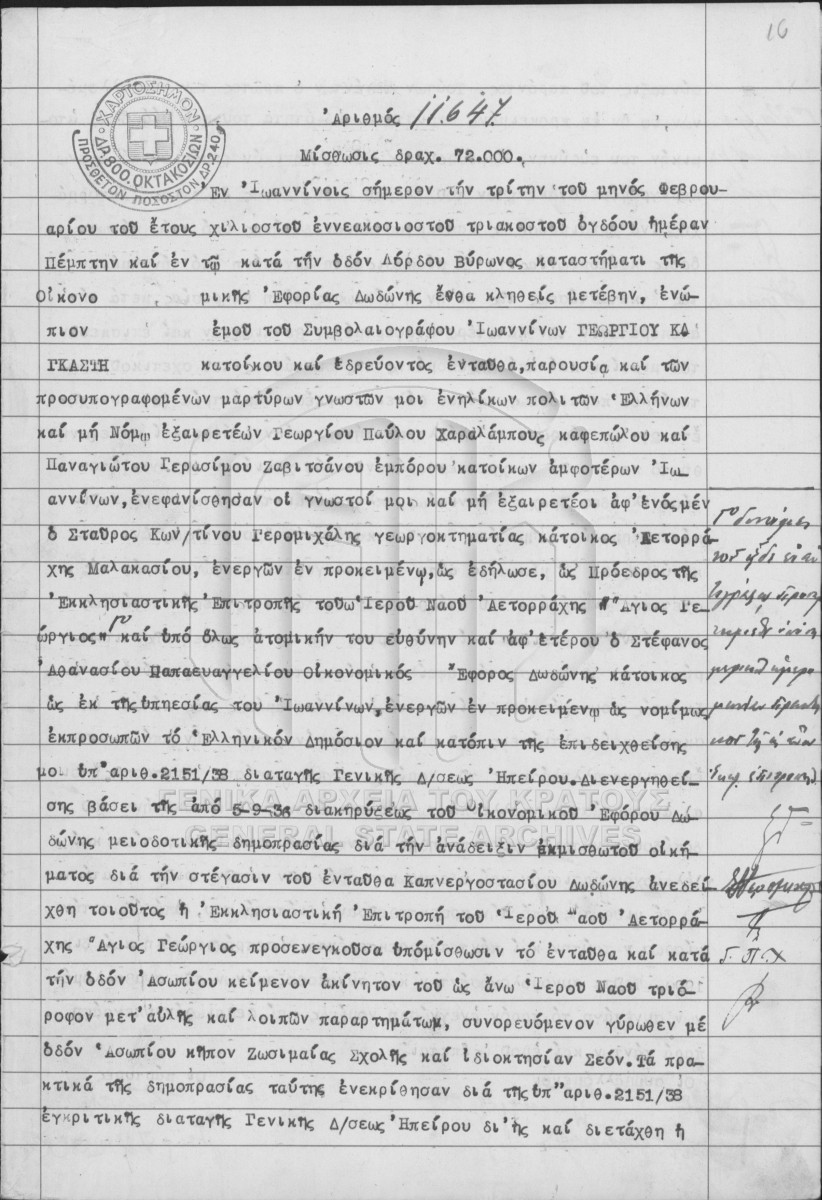 16
ΧΑΡΤΟΣΗΜΟΝ
ΔΡ.800.ΟΚΤΑΚΟΣΙΩΝ
ΠΡΟΣΘΕΤΟΝ ΠΟΣΟΣΤΟΝ ΔΡ.240
Ἀριθμός 11.647.
Μίσθωσις δραχ. 72.000.
Ἐν Ἰωαννίνοις σήμερον τήν τρίτην τοῦ μηνός Φεβρου-
αρίου τοῦ ἔτους χιλιοστοῦ ἐννεακοσιοστοῦ τριακοστοῦ ὀγδόου ἡμέραν
Πέμπτην καί ἐν τῷ κατά τήν ὁδόν Λόρδου Βύρωνος καταστήματι τῆς
Οἰκονο μικῆς Ἐφορίας Δωδώνης ἔνθα κληθείς μετέβην, ἐνώ-
πιον ἐμοῦ τοῦ Συμβολαιογράφου Ἰωαννίνων ΓΕΩΡΓΙΟΥ ΚΑ
ΓΚΑΣΤΗ κατοίκου καί ἑδρεύοντος ἐνταῦθα,παρουσίᾳ καί τῶν
προσυπογραφομένων μαρτύρων γνωστῶν μοι ἐνηλίκων πολιτῶν Ἑλλήνων
καί μή Νόμῳ ἐξαιρετέων Γεωργίου Παύλου Χαραλάμπους καφεπώλου καί
Παναγιώτου Γερασίμου Ζαβιτσάνου ἐμπόρου κατοίκων ἀμφοτέρων Ἰω-
αννίνων,ἐνεφανίσθησαν οἱ γνωστοί μοι καί μή ἐξαιρετέοι ἀφ'ἑνός μέν
ὁ Σταῦρος Κων/τίνου Γερομιχάλης γεωργοκτηματίας κάτοικος Ἀετορρά-
χης Μαλακασίου, ἐνεργῶν ἐν προκειμένῳ,ὡς ἐδήλωσε, ὡς Πρόεδρος τῆς
Ἐκκλησιαστικῆς Ἐπιτροπῆς τοῦω Ἱεροῦ Ναοῦ Ἀετορράχης "Ἅγιος Γε-
ώργιος" καί ὑπό ὅλως ἀτομικήν του εὐθύνην καί ἀφ'ἑτέρου ὁ Στέφανος
Ἀθανασίου Παπαευαγγελίου Οἰκονομικός Ἔφορος Δωδώνης κάτοικος
ὡς ἐκ τῆς ὑπηεσίας του Ἰωαννίνων,ἐνεργῶν ἐν προκειμένῳ ὡς νομίμως
ἐκπροσωπῶν τό Ἑλληνικόν Δημόσιον καί κατόπιν τῆς ἐπιδειχθείσης
μοι ὑπ'ἀριθ.2151/38 διαταγῆς Γενικῆς Δ/σεως Ἠπείρου.Διενεργηθεί-
σης βάσει τῆς ἀπό 5-9-36 διακηρύξεως τοῦ οἰκονομικοῦ Ἐφόρου Δω-
δώνης μειοδοτικῆς δημοπρασίας διά τήν ἀνάδειξιν ἐκμισθωτοῦ οἰκή-
ματος διά τήν στέγασιν τοῦ ἐνταῦθα Καπνεργοστασίου Δωδώνης ἀνεδεί-
χθη τοιοῦτος ἡ Ἐκκλησιαστική Ἐπιτροπή τοῦ Ἱεροῦ Ναοῦ Ἀετορρά-
χης Ἅγιος Γεώργιος προσενεγκοῦσα ὑπόμίσθωσιν τό ἐνταῦθα καί κατά
τήν ὁδόν Ἀσωπίου κείμενον ἀκίνητον τοῦ ὡς ἄνω Ἱεροῦ Ναοῦ τριό-
ροφον μετ'αὐλῆς καί λοιπῶν παραρτημάτων, συνορευόμενον γύρωθεν μέ
ὁδόν Ἀσωπίου κῆπον Ζωσιμαίας Σχολῆς καί ἰδιοκτησίαν Σεόν.Τά πρα-
κτικά τῆς δημοπρασίας ταύτης ἐνεκρίθησαν διά τῆς ὑπ'ἀριθ.2151/38
ἐγκριτικῆς διαταγῆς Γενικῆς Δ/σεως Ἠπείρου δι'ἧς καί διετάχθη ἡ
Γ. Π. Χ
ΓΕΝΙΚΑ ΑΡΧΕΙΑ ΤΟΥ ΚΡΑΤΟΥΣ
GENERAL STATE ARCHIVES